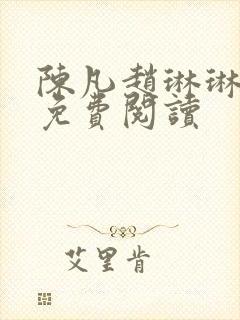 陳凡趙琳琳
免費閱讀
艾里肯